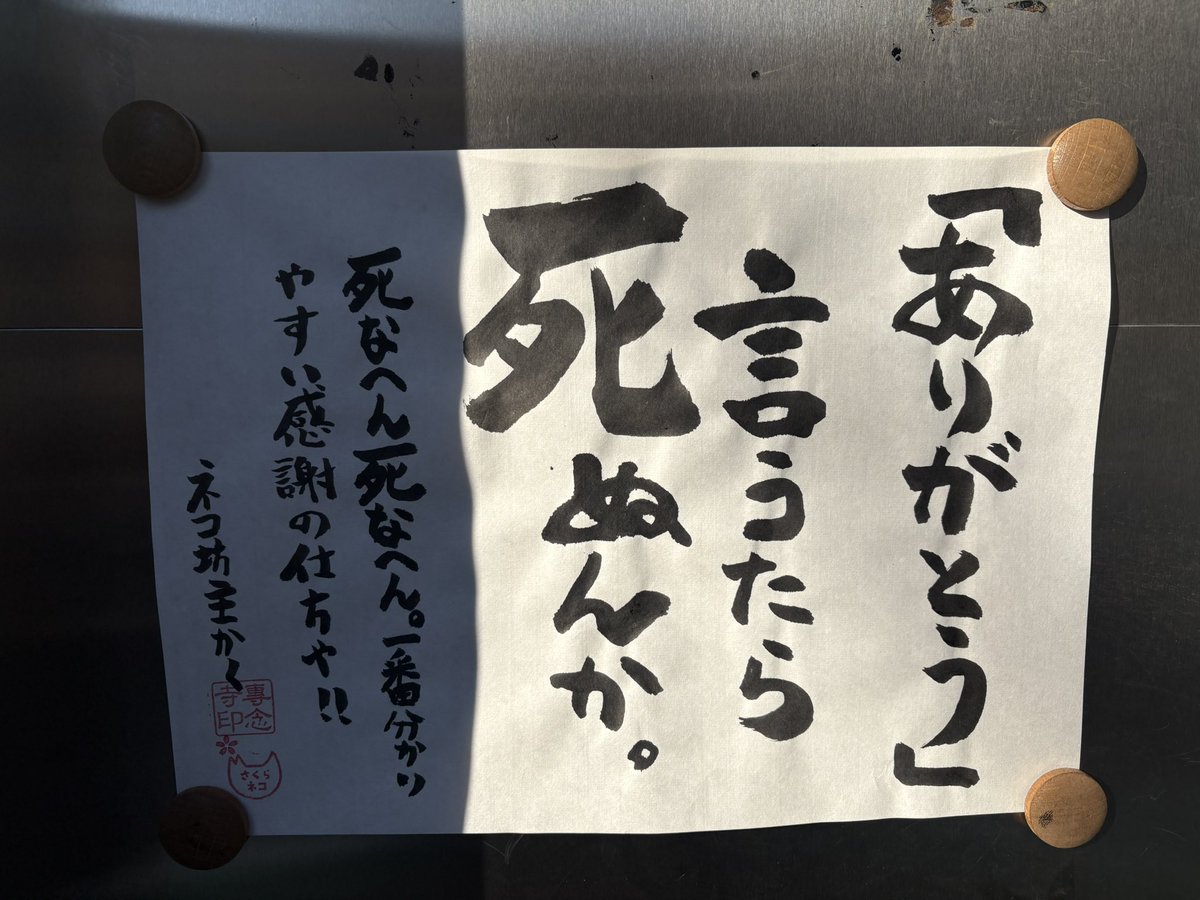 「ありがとう」
言うたら
死ぬんか。
死なへん死なへん。一番分かり
やすい感謝の仕方や!!
ネコ坊主かく
專念
寺印
さくら
ネコ